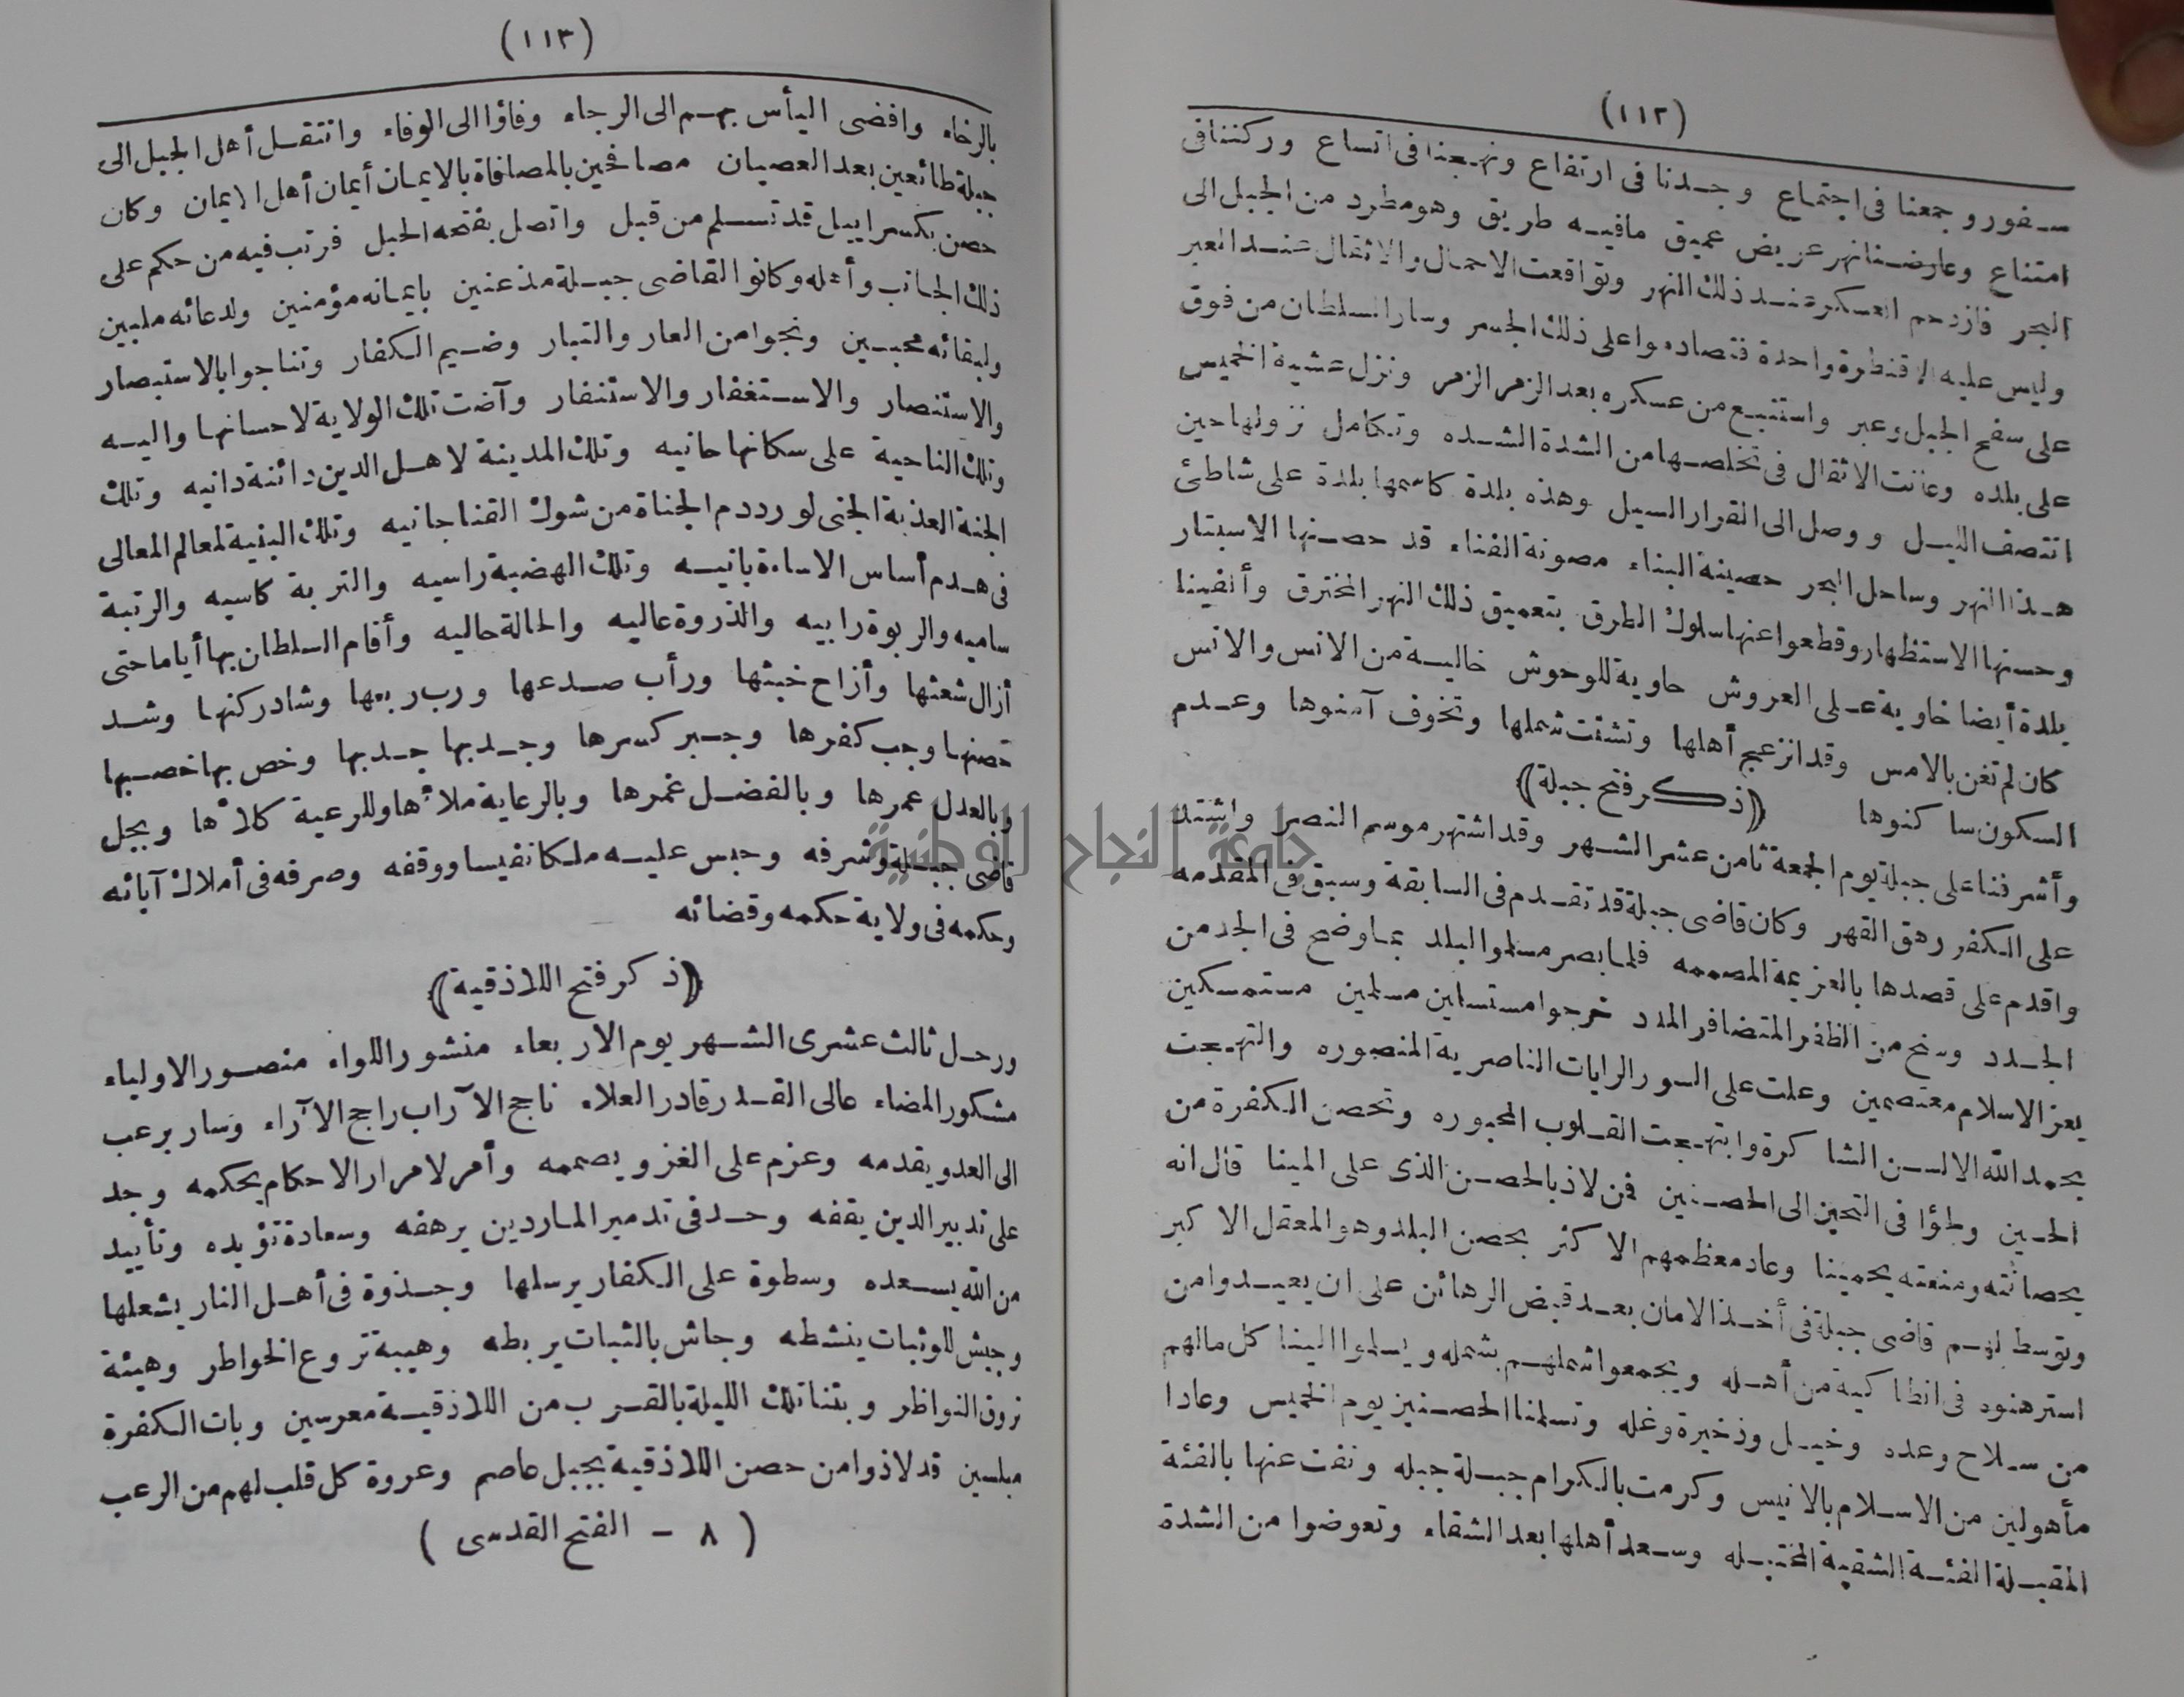 (١١٢)
سفور وجمعنا فى اجتماع وجدنا فى ارتفاع ونهجنا فى اتساع وركننا فى
امتناع وعارضنا نهر عريض عميق مافيه طريق وهو مطرد من الجبل الى
البحر فازدحم العسكر عند ذلك النهر وتواقعت الاحمال والاثقال عند العبر
وليس عليه الا قنطرة واحدة فتصادموا على ذلك الجسر وسار السلطان من فوق
على سفح الجبل وعبر واستتبع من عسكره بعد الزمر الزمر ونزل عشية الخميس
على بلده وعانت الاثقال فى تخلصها من الشدة الشده وتكامل نزولها حين
انتصف الليل ووصل الى القرار السيل وهذه بلدة كاسمها بلدة على شاطئ
هذا النهر وساحل البحر حصينة البناء مصونة الفناء قد حصنها الاسبتار
وحسنها الاستظهار وقطعوا عنها سلوك الطرق بتعميق ذلك النهر المخترق وألفينا
بلدة أيضا خاوية على العروش حاوية للوحوش خالية من الانس والانس
كان لم تغن بالامس وقد انزعج أهلها وتشتت شملها وتخوف آمنوها وعدم
السكون ساكنوها ﴿ذكر فتح جبلة﴾
وأشرفنا على جبلة يوم الجمعة ثامن عشر الشهر وقد اشتهر موسم النصر واشتد
على الكفر رهق القهر وكان قاضى جبلة قد تقدم فى السابقة وسبق فى المقدمه
واقدم على قصدها بالعزيمة المصممه فلما بصر مسلمو البلد بما وضح فى الجد من
الجدد وسنح من الظفر المتضافر المدد خرجوا مستسلمين مسلمين مستمسكين
بعز الاسلام معتصمين وعلت على السور الرايات الناصرية المنصوره والتهجت
بحمد الله الالسن الشاكرة وابتهجت القلوب المحبوره وتحصن الكفرة من
الحين ولجؤا فى التحيز الى الحصنين فمن لاذ بالحصن الذى على المينا قال انه
بحصانته ومنعته يحمينا وعاد معظمهم الاكثر بحصن البلد وهو المعقل الاكبر
وتوسط لهم قاضى جبلة فى أخذ الامان بعد قبض الرهائن على ان يعيدوا من
استرهنوه فى انطاكية من أهله ويجمعوا شملهم بشمله ويسلموا الينا كل مالهم
من سلاح وعده وخيل وذخيرة وغله وتسلمنا الحصنين يوم الخميس وعادا
مأهولين من الاسلام بالانيس وكرمت بالكرام جبلة جبله ونفت عنها بالفئة
المقبلة الفئة الشقية المختبله وسعد أهلها بعد الشقاء وتعوضوا من الشدة
(١١٣)
بالرخاء وافضى اليأس بهم الى الرجاء وفاؤا الى الوفاء وانتقل أهل الجبل الى
جبلة طائعين بعد العصيان مصافحين بالمصافاة بالايمان أيمان أهل الايمان وكان
حصن بكسراييل قد تسلم من قبل واتصل بفتحه الحبل فرتب فيه من حكم على
ذلك الجانب وأهله وكانوا القاضى جبلة مذعنين بايمانه مؤمنين ولدعائه ملبين
ولبقائه محبين ونجوا من العار والتبار وضيم الكفار وتناجوا بالاستبصار
والاستنصار والاستغفار والاستنفار وآضت تلك الولاية لاحسانها واليه
وتلك الناحية على سكانها حانيه وتلك المدينة لاهل الدين دائنة دانيه وتلك
الجنة العذبة الجنى لورد دم الجناة من شوك القنا جانيه وتلك البنية لمعالم المعالى
فى هدم أساس الاساءة بانيه وتلك الهضبة راسيه والتربة كاسيه والرتبة
ساميه والربوة رابيه والذروة عاليه والحالة حاليه وأقام السلطان بها أياما حتى
أزال شعثها وأزاح خبثها ورأب صدعها ورب ربعها وشاد ركنها وشد
حصنها وجب كفرها وجبر كسرها وجد بها جدبها وخص بها خصبها
وبالعدل عمرها وبالفضل غمرها وبالرعاية ملأها وللرعية كلأها وبجل
قاضى جبلة وشرفه وحبس عليه ملكا نفيسا ووقفه وصرفه فى أملاك آبائه
وحكمه فى ولاية حكمه وقضائه
﴿ذكر فتح اللاذقية﴾
ورحل ثالث عشرى الشهر يوم الاربعاء منشور اللواء منصور الاولياء
مشكور المضاء عالى القدر قادر العلاء ناجح الآراب راجح الآراء وسار برعب
الى العدو يقدمه وعزم على الغزو يصممه وأمر لامرار الاحكام يحكمه وجد
على تدبير الدين يقفه وحد فى تدمير الماردين يرهفه وسعادة تؤيده وتأييد
من الله يسعده وسطوة على الكفار يرسلها وجذوة فى أهل النار يشعلها
وجيش للوثبات ينشطه وجاش بالثبات يربطه وهيبة تروع الخواطر وهيئة
تروق النواظر وبتنا تلك الليلة بالقرب من اللاذقية معرسين وبات الكفرة
مبلسين قد لاذوا من حصن اللاذقية بجبل عاصم وعروة كل قلب لهم من الرعب
( ٨ – الفتح القدسى )
جامعة النجاح الوطنية